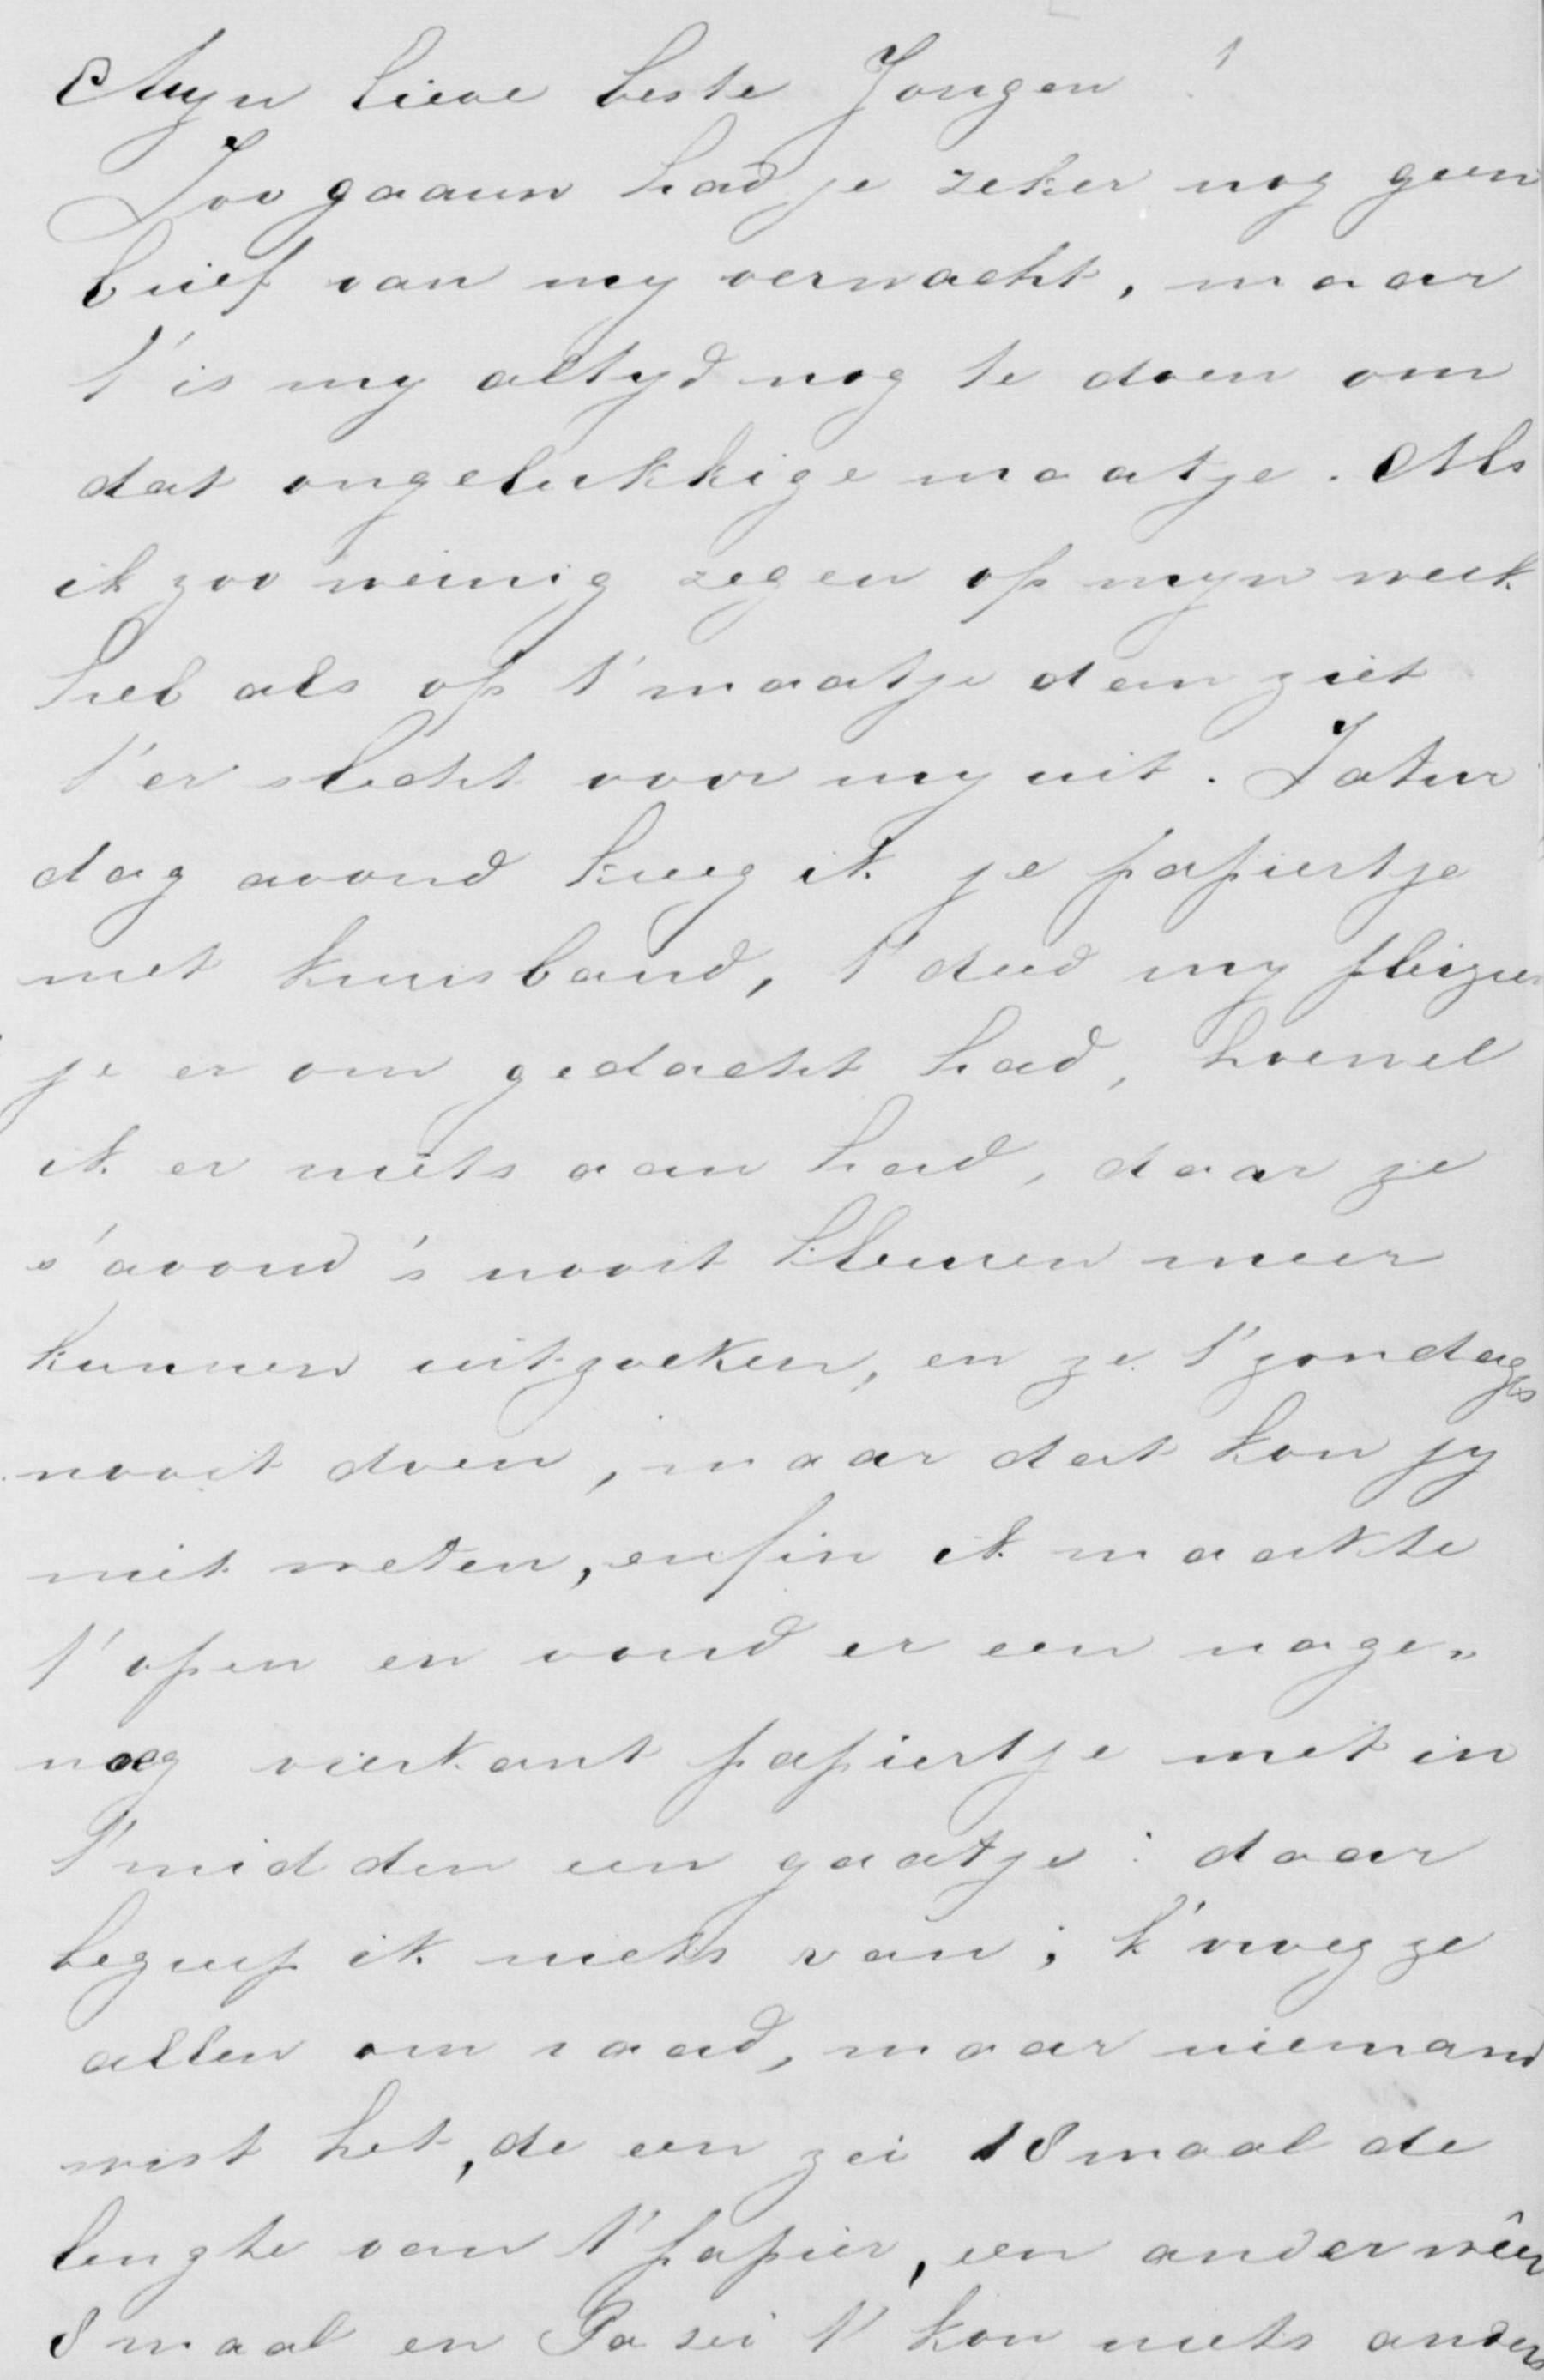 Myn lieve beste Jongen!
Zoo gaauw had je zeker nog geen
brief van my verwacht, maar
t'is my altyd nog te doen om
dat ongelukkige maatje. Als
ik zoo weinig zegen op myn werk
heb als op t'maatje dan ziet
t'er slecht voor my uit. Zatur
dag avond kreeg ik je papiertje
met kruisband, t'deed my pleizier
je er om gedacht had, hoewel
ik er niets aan had, daar ze
s'avond's nooit kleuren meer
kunnen uitzoeken, en ze t'zondags
nooit doen, maar dat kon jy
niet weten, enfin ik maakte
t'open en vond er een nage„
noeg vierkant papiertje met in
t'midden een gaatje: daar
begreep ik niets van; k'vroeg ze
allen om raad, maar niemand
wist het, de een zei 18 maal de
lengte van t'papier, een ander wêer
8 maal en Pa zei t' kon niets anders